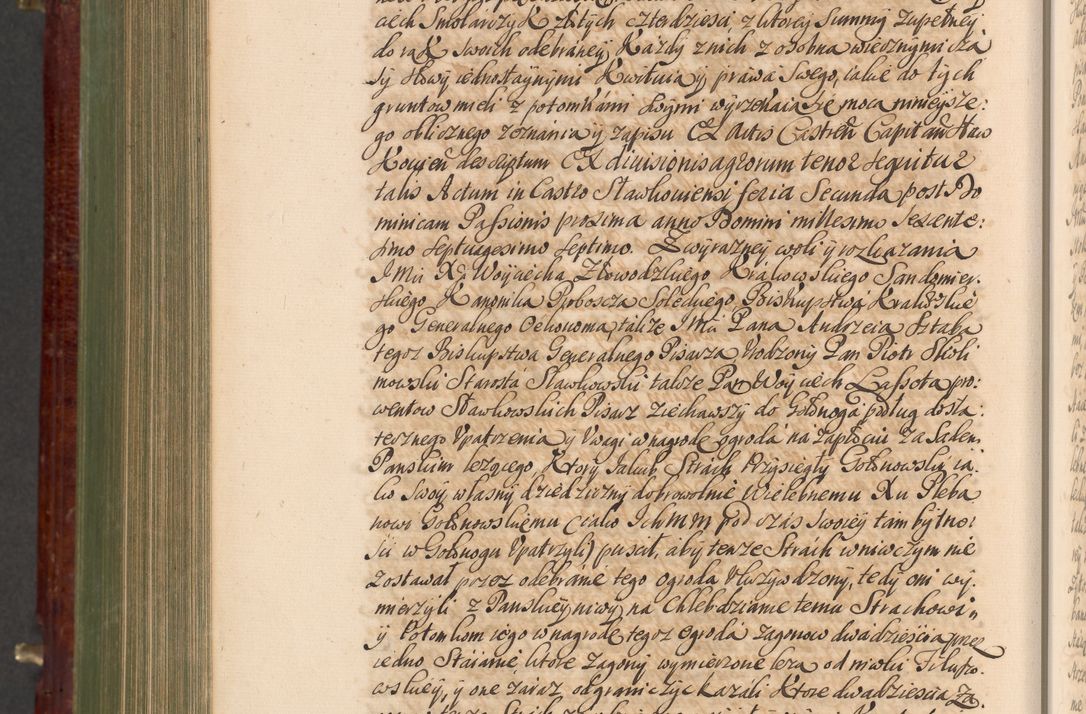 ciech Smolarczyk złotych czterdzieści z ktorey Summy zupełney
do rąk swoich odebraney, Każdy z nich z osobna wiecznymi cza
sy słowy iednostaynymi Kwituią y prawa swego, iakie do tych
gruntow mieli z potomkami swymi wyrzekaią się mocą ninieysze:
go oblicznego zeznania y zapisu Ex Actis Castreñ Capitañ Slaw
Kovieñ descriptum Ex divisionis agrorum tenor sequitur
talis Actum in Castro Slawkoviensi feria Secunda post Do
minicam Passionis proxima anno Domini millesimo Sexcente:
simo septuagesimo septimo. Z wyrazney woli y rozkazania
JMci Xdz Woyciecha Złowodzkiego Krakowskiego Sandomier:
skiego, Kanonika Proboscza Soleckiego, Biskupstwa Krakowskie
go Generalnego Oekonoma, także JMci Pana Andrzeia Staba
tegoż Biskupstwa Generalnego Pisarza, Urodzony Pan Piotr Skoli
mowski Starosta Sławkowski także Pan Woyciech Lassota pro:
wentow Sławkowskich Pisarz ziechawszy do Gołonoga podług dosta:
tecznego Upatrzenia y Uwagi w nagrodę ogroda na Zapłociu za Sadem
Panskim leżącego, Ktory Jakub Strach Przysięgły Gołonowski ia:
ko swoy własny dziedziczny dobrowolnie Wielebnemu Xu Pleba
nowi Gołonowskiemu (iako Ichmm pod czas swoiey tam bytno:
ści w Gołonogu Upatrzyli) puscił, aby tenże Strach w niwczym nie
zostawał przez odebranie tego ogroda Ukrzywdzony, tedy oni wy:
mierzyli z Panskiey niwy na Chleb dzianie temu Strachowi
y Potomkom iego w nagrodę tegoż ogroda zagonow dwadziescia przez
iedno Staianie ktore zagony wymierzone leżą od niwki Filipo:
wskiey, y one zaraz odgraniczyc kazali Ktore dwadziescia za